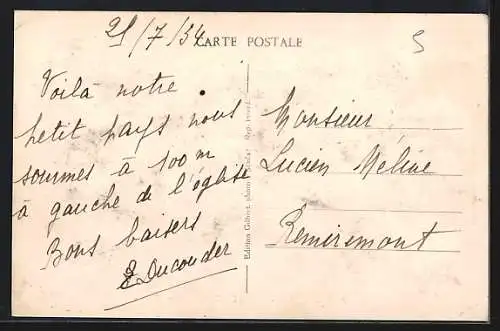 25/7/34
CARTE POSTALE
5
Voilà notre
petit pays nous
sommes à 100 m
à gauche de l'église
Bons baisers
E Ducouder
Monsieur
Lucien Méline
Remiremont